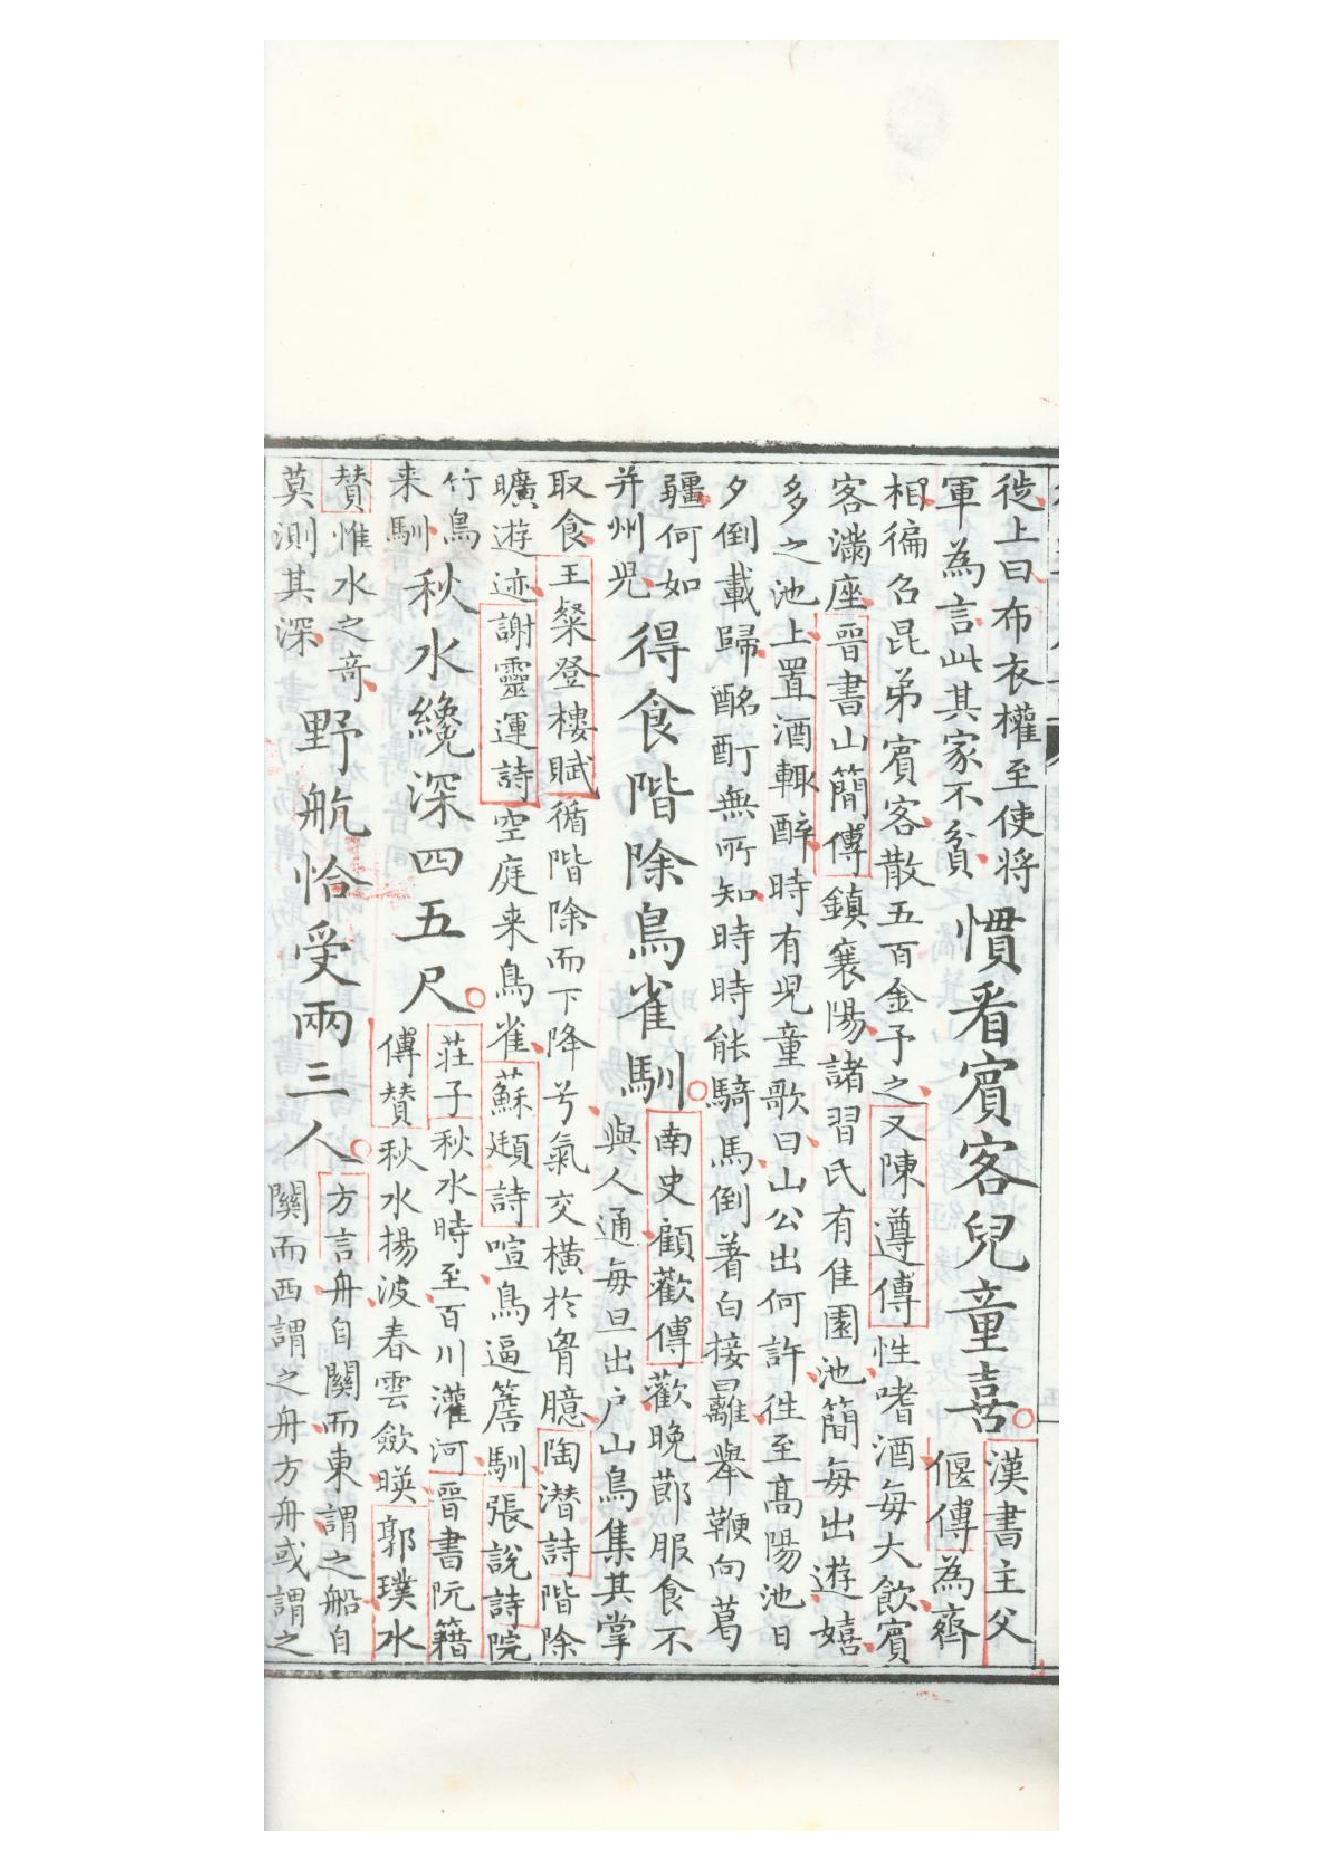 徙上曰布衣權至使將
軍為言此其家不貧
慣看賓客兒童喜
漢書主父
偃傳為齊
相徧召昆弟賓客散五百金予之又陳遵傳性嗜酒每大飲賓
客滿座晉書山簡傳鎮襄陽諸習氏有佳園池簡每出遊嬉
多之池上置酒輒醉時有児童歌曰山公出何許徃至高陽池日
夕倒載歸酩酊無所知時時能騎馬倒著白接䍦舉鞭向葛
疆何如
并州児
得食階除鳥雀馴
南史顧歡傳歡晚莭服食不
與人通每旦出户山鳥集其掌
取食王粲登樓賦循階除而下降兮氣交橫於胷臆陶潜詩階除
曠遊迹謝靈運詩空庭来鳥雀蘇頲詩喧鳥逼簷馴張說詩院
竹鳥
来馴
秋水纔深四五尺
莊子秋水時至百川灌河晉書阮籍
傳贊秋水揚波春雲斂暎郭璞水
贊惟水之竒
莫測其深
野航恰受兩三人
方言舟自關而東謂之船自
關而西謂之舟方舟或謂之